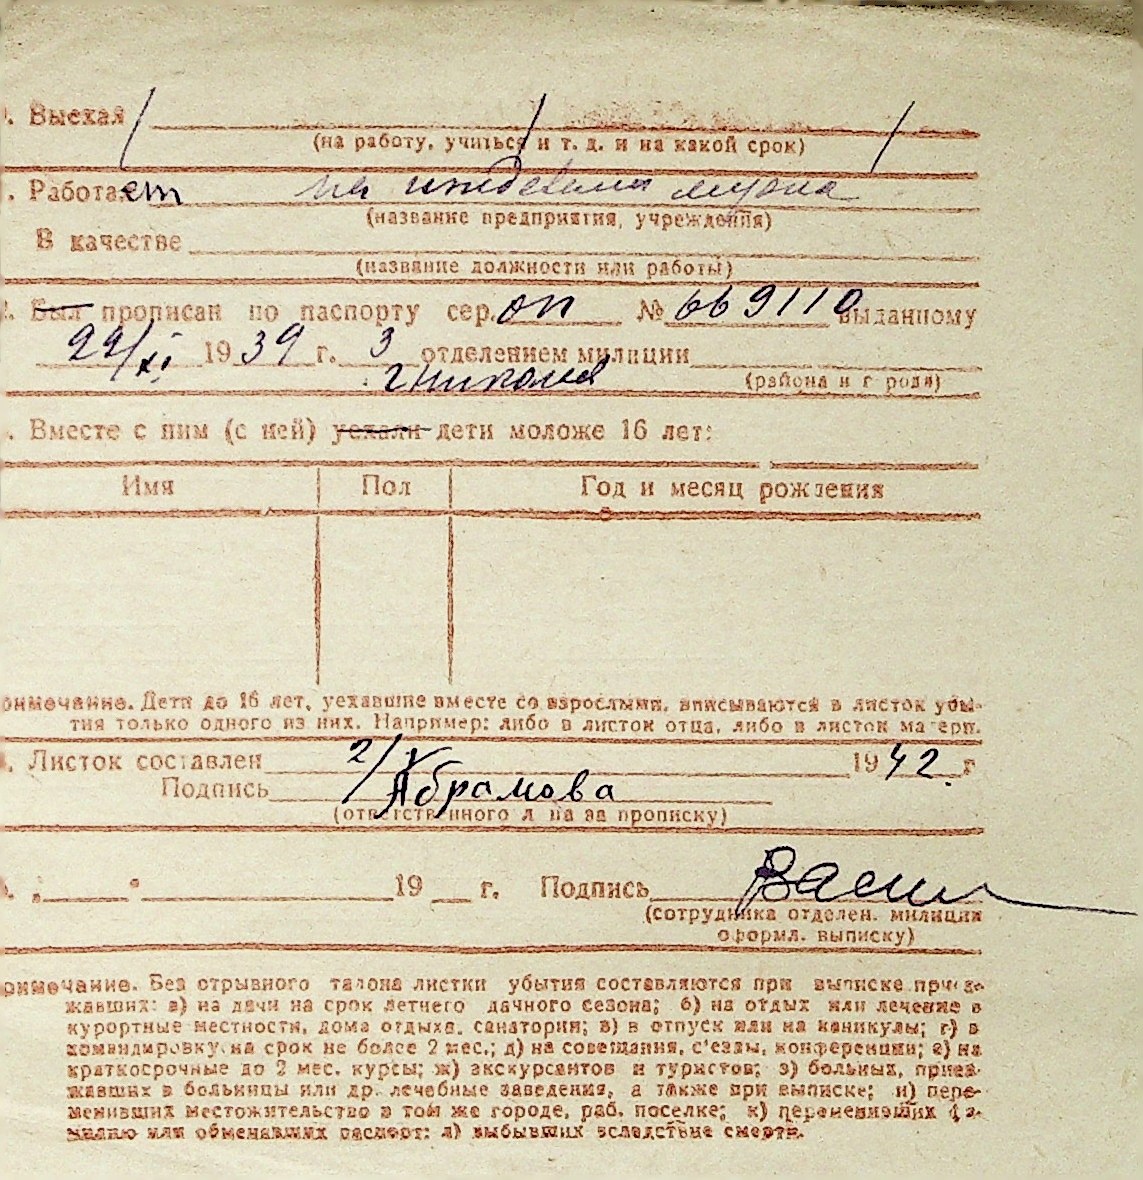 . Выехал
(на работу, учиться и т. д. и на какой срок)
. Работает на иждевении мужа
(название предприятия, учреждения)
В качестве
(название должности или работы)
. Был прописан по паспорту сер. ОП № 669110 выданному
22/XI 1939 г. 3 отделением милиции
(района и города)
. Вместе с ним (с ней) уехали дети моложе 16 лет:
Имя Пол Год и месяц рождения
римечание. Дети до 16 лет, уехавшие вместе со взрослыми, вписываются в листок убы-
тия только одного из них. Например: либо в листок отца, либо в листок матери.
. Листок составлен 2/X 1942 г
Подпись Абрамова
(ответственного лица за прописку)
. „ “ 19 г. Подпись
(сотрудника отделен. милиции
оформл. выписку)
римечание. Без отрывного талона листки убытия составляются при выписке приез-
жавших: а) на дачи на срок летнего дачного сезона; б) на отдых или лечение в
курортные местности, дома отдыха, санатории; в) в отпуск или на каникулы; г) в
командировку на срок не более 2 мес.; д) на совещания, с'езды, конференции; е) на
краткосрочные до 2 мес. курсы; ж) экскурсантов и туристов; з) больных, приез-
жавших в больницы или др. лечебные заведения, а также при выписке; и) пере-
менивших местожительство в том же городе, раб. поселке; к) переменивших фа-
милию или обменявших паспорт; л) выбывших вследствие смерти.